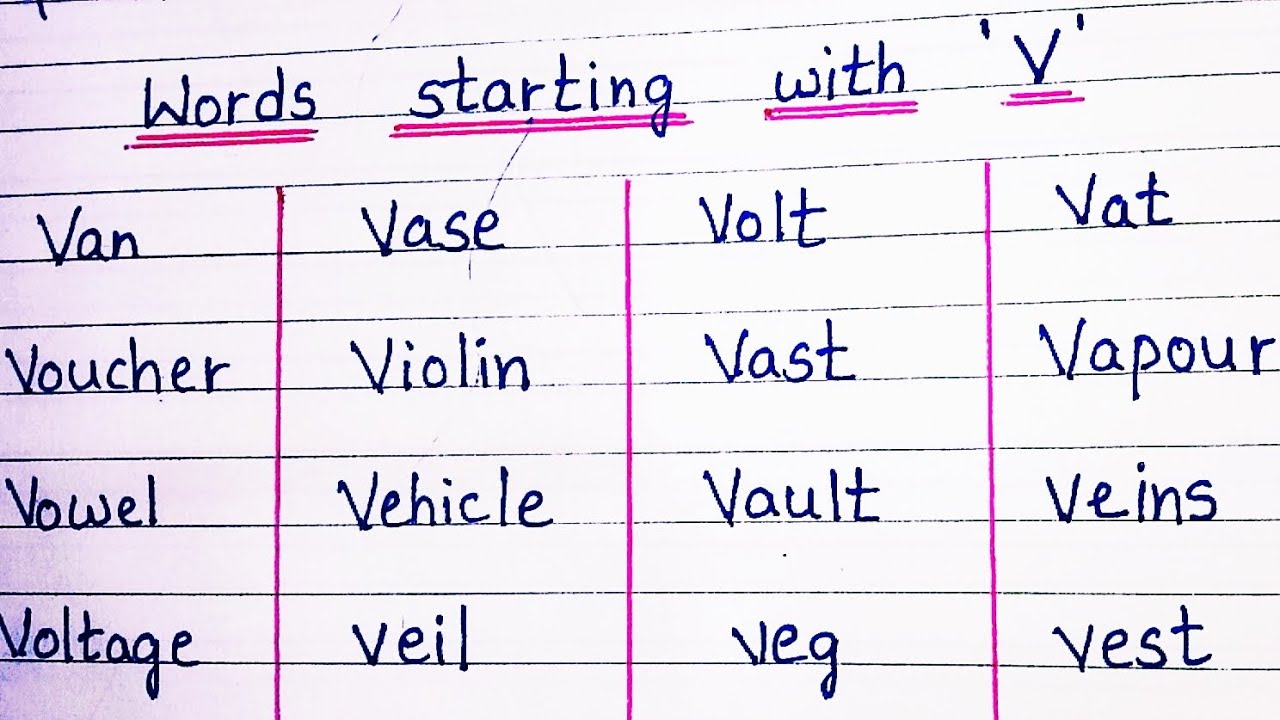 Words starting with 'V'
Van Vase Volt Vat
Voucher Violin Vast Vapour
Vowel Vehicle Vault Veins
Voltage Veil Veg Vest